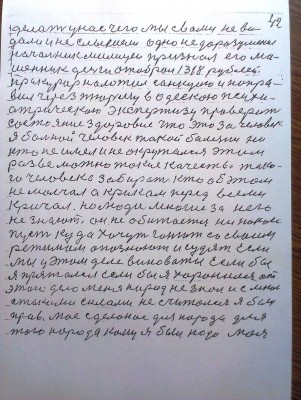 42
делат у нас чего мы с вами не ви
дали и не слышем одно недоразумения
началник милиции признал его ма
шенник деньги отобрал 1318 рублей.
прокурор наложил санкцию и напра
вил через тюрму в одескою психи
атрическою экспертизу проверит
состояние здоровия что это за человек
я болной человек такой болезни ни
кто не имел и не
разве можно такие качества тако
го человека забират кто об этом
не молчал а крикам перед всеми
кричал, но люди многие за него
не знают. он не обитается ни
пуст куда хочут гонют со своим
режимам опознают и судят если
мы у этом деле виноваты если бы
я прятался если бы я хоронился от
этого дело меня народ не знал и с мною
старыми силами не считолся я был
прав, мое сделоное для народа для
того народа кому я был надо моя